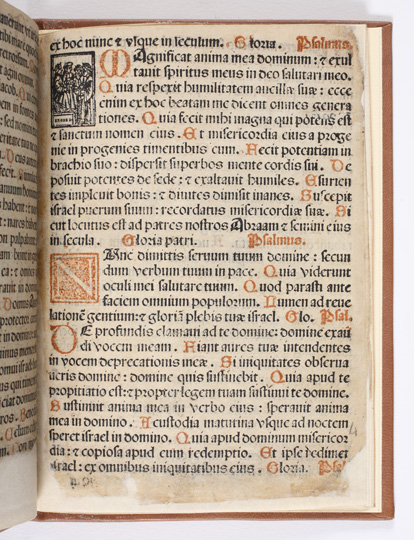 ex hoc nunc & vsque in seculum. Gloria. Psalmus.
Magnificat anima mea dominum: & exul
tauit spiritus meus in deo salutari meo.
Quia respexit humilitatem ancillæ suæ: ecce
enim ex hoc beatam me dicent omnes genera
tiones. Quia fecit mihi magna qui potens est
& sanctum nomen eius. Et misericordia eius a proge
nie in progenies timentibus eum. Fecit potentiam in
brachio suo: dispersit superbos mente cordis sui. De
posuit potentes de sede: & exaltauit humiles. Esurien
tes impleuit bonis: & diuites dimisit inanes. Suscepit
israel puerum suum: recordatus misericordiæ suæ. Si
cut locutus est ad patres nostros Abraam & semini eius
in secula. Gloria patri. Psalmus.
Nunc dimittis seruum tuum domine: secun
dum verbum tuum in pace. Quia viderunt
oculi mei salutare tuum. Quod parasti ante
faciem omnium populorum. Lumen ad reue
lationē gentium: & gloriā plebis tuæ israel. Glo. Psal.
De profundis clamaui ad te domine: domine exau
di vocem meam. Fiant aures tuæ intendentes
in vocem deprecationis meæ. Si iniquitates obserua
ueris domine: domine quis sustinebit. Quia apud te
propitiatio est: & propter legem tuam sustinui te domine.
Sustinuit anima mea in verbo eius: sperauit anima
mea in domino. A custodia matutina vsque ad noctem
speret israel in domino. Quia apud dominum misericor
dia: & copiosa apud eum redemptio. Et ipse redimet
israel: ex omnibus iniquitatibus eius. Gloria. Psal